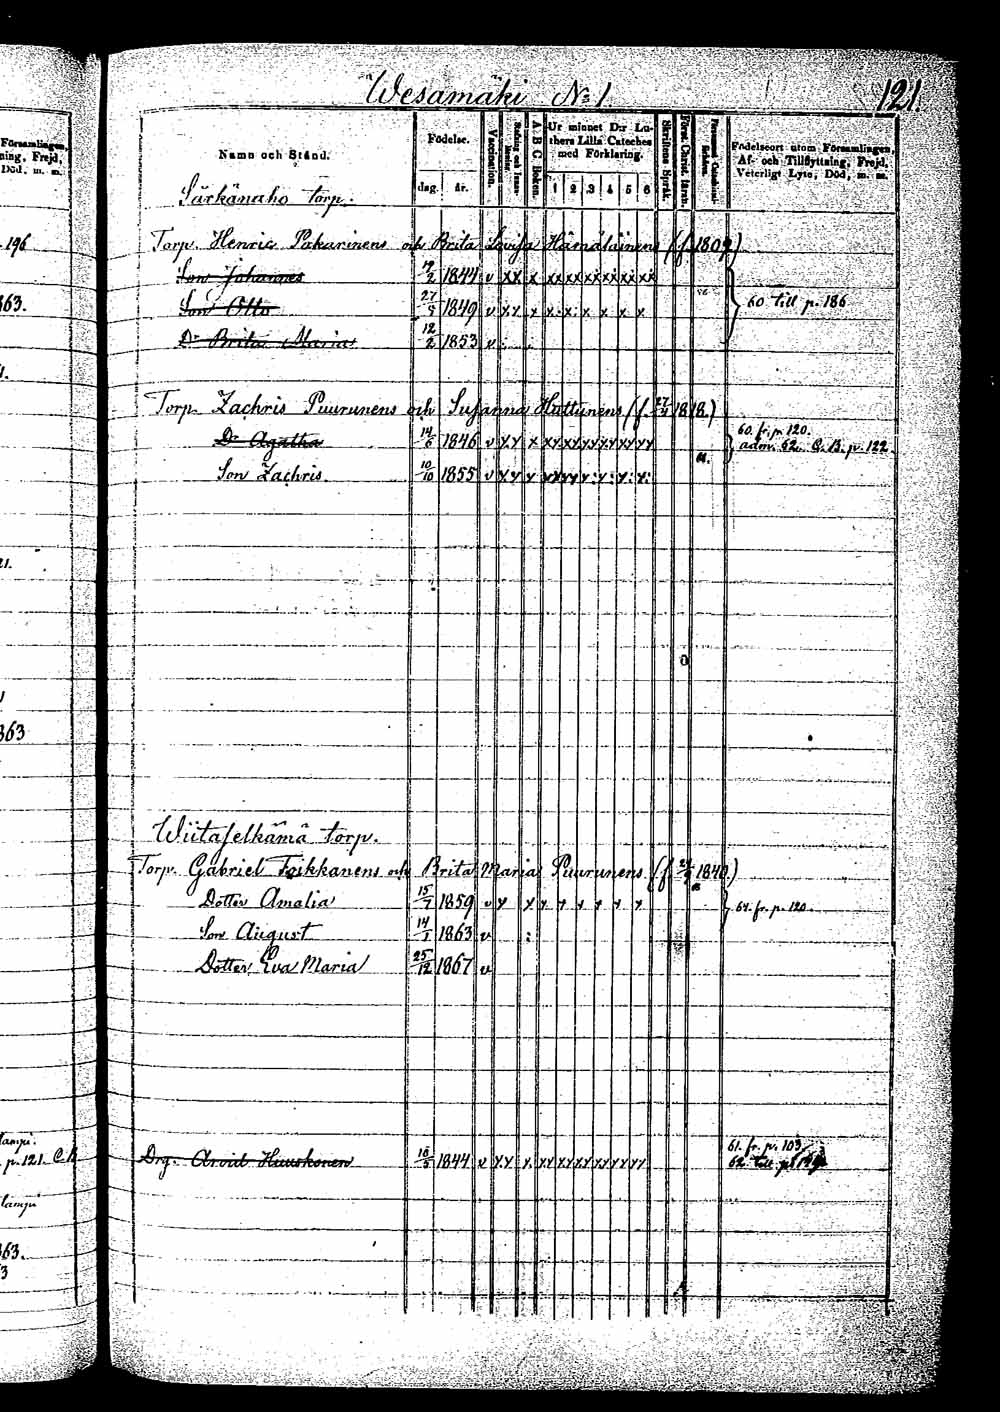 Wesamäki No 1
121.
Namn och Stånd.
Födelse.
dag. år.
Vaccination.
A B C Boken.
Ur minnet D:r Luthers Lilla Cateches med Förklaring.
1 2 3 4 5 6
Skriftens Språk.
Födelseort utom Församlingen, Af- och Tillflyttning, Frejd, Veterligt Lyte, Död, m. m.
Särkänaho torp.
Torp. Henric Pakarinens och Brita Lovisa Hämäläinens (f. 1809)
Son Johannes 19/2 1844 v xx x xx xx xx xx xx xx
Son Otto 1849 v x x x x x x x x x 60 till p. 186
Dr Brita Maria 12/2 1853 v
Torp. Zachris Puurunens och Susanna Huttunens (f. 27/4 1818.)
Dr Agatha 14/6 1846 v xx x xx xx xx xx xx xx 60. fr. p. 120.
adm. 62. C. B. p. 122
Son Zachris. 10/10 1855 v
Wiitaselkämä torp.
Torp. Gabriel Toikkanens och Brita Maria Puurunens (f. 1840.)
Dotter Amalia 15/7 1859 v x x x x x x x x 64. fr. p. 120.
Son August 14/1 1863 v
Dotter Eva Maria 25/12 1867 v
Drg. Arvid Huuskonen 16/5 1844 v xx x xx xx xx xx xx xx 61. fr. p. 103
62. till p.
Församlingen,
ning, Frejd,
Död, m. m.
196
363.
21.
363
p. 121. C. B.
lampi
363.
3